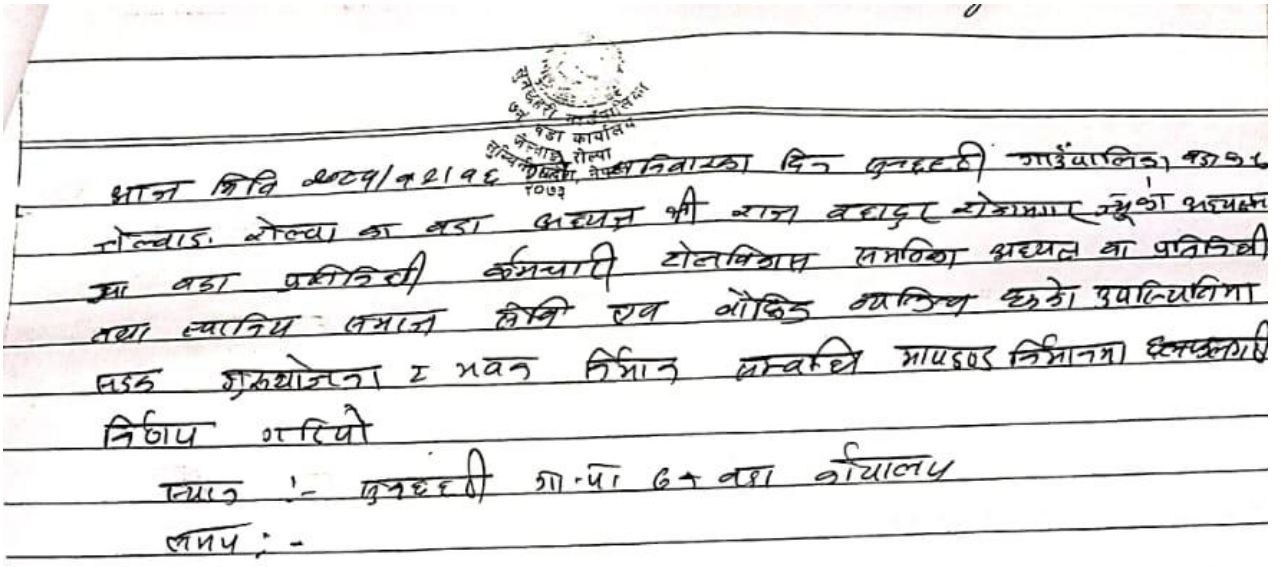 सुनछहरी गाउँपालिका
७ नं वडा कार्यालय
जेल्वाङ, रोल्पा
नेपाल
२०७३
आज मिति २०८१/१२/१६ शनिबारका दिन सुनछहरी गाउँपालिका वडा नं ७
जेल्वाङ रोल्पा का वडा अध्यक्ष श्री राज बहादुर रोकामगर ज्यूको अध्यक्षता
मा वडा प्रतिनिधी कर्मचारी टोलविकास समितिका अध्यक्ष वा प्रतिनिधी
तथा स्थानिय समाज सेवि एव बौद्धिक व्यक्तित्व हरुको उपस्थितिमा
सडक गुरुयोजना र भवन निर्मान सम्बन्धि मापडण्ड निर्मानमा छलफलगरी
निर्णय गरियो
स्थान :- सुनछहरी गा.पा ७ नं वडा कार्यालय
समय :-